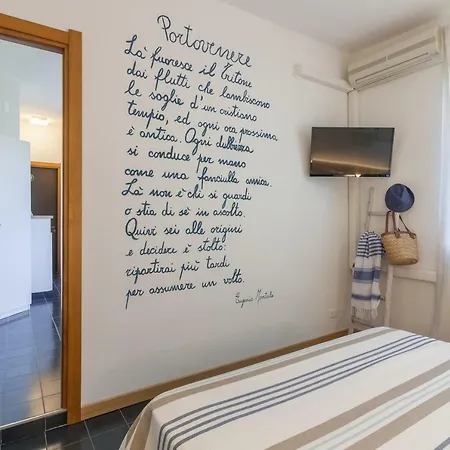 Portovenere
Là fuoresce il Tritone
dai flutti che lambiscono
le soglie d'un cristiano
tempio, ed ogni ora prossima
è antica. Ogni dubbiezza
si conduce per mano
come una fanciulla amica.
Là non è chi si guardi
o stia di sé in ascolto.
Quivi sei alle origini
e decidere è stolto:
ripartirai più tardi
per assumere un volto.
Eugenio Montale